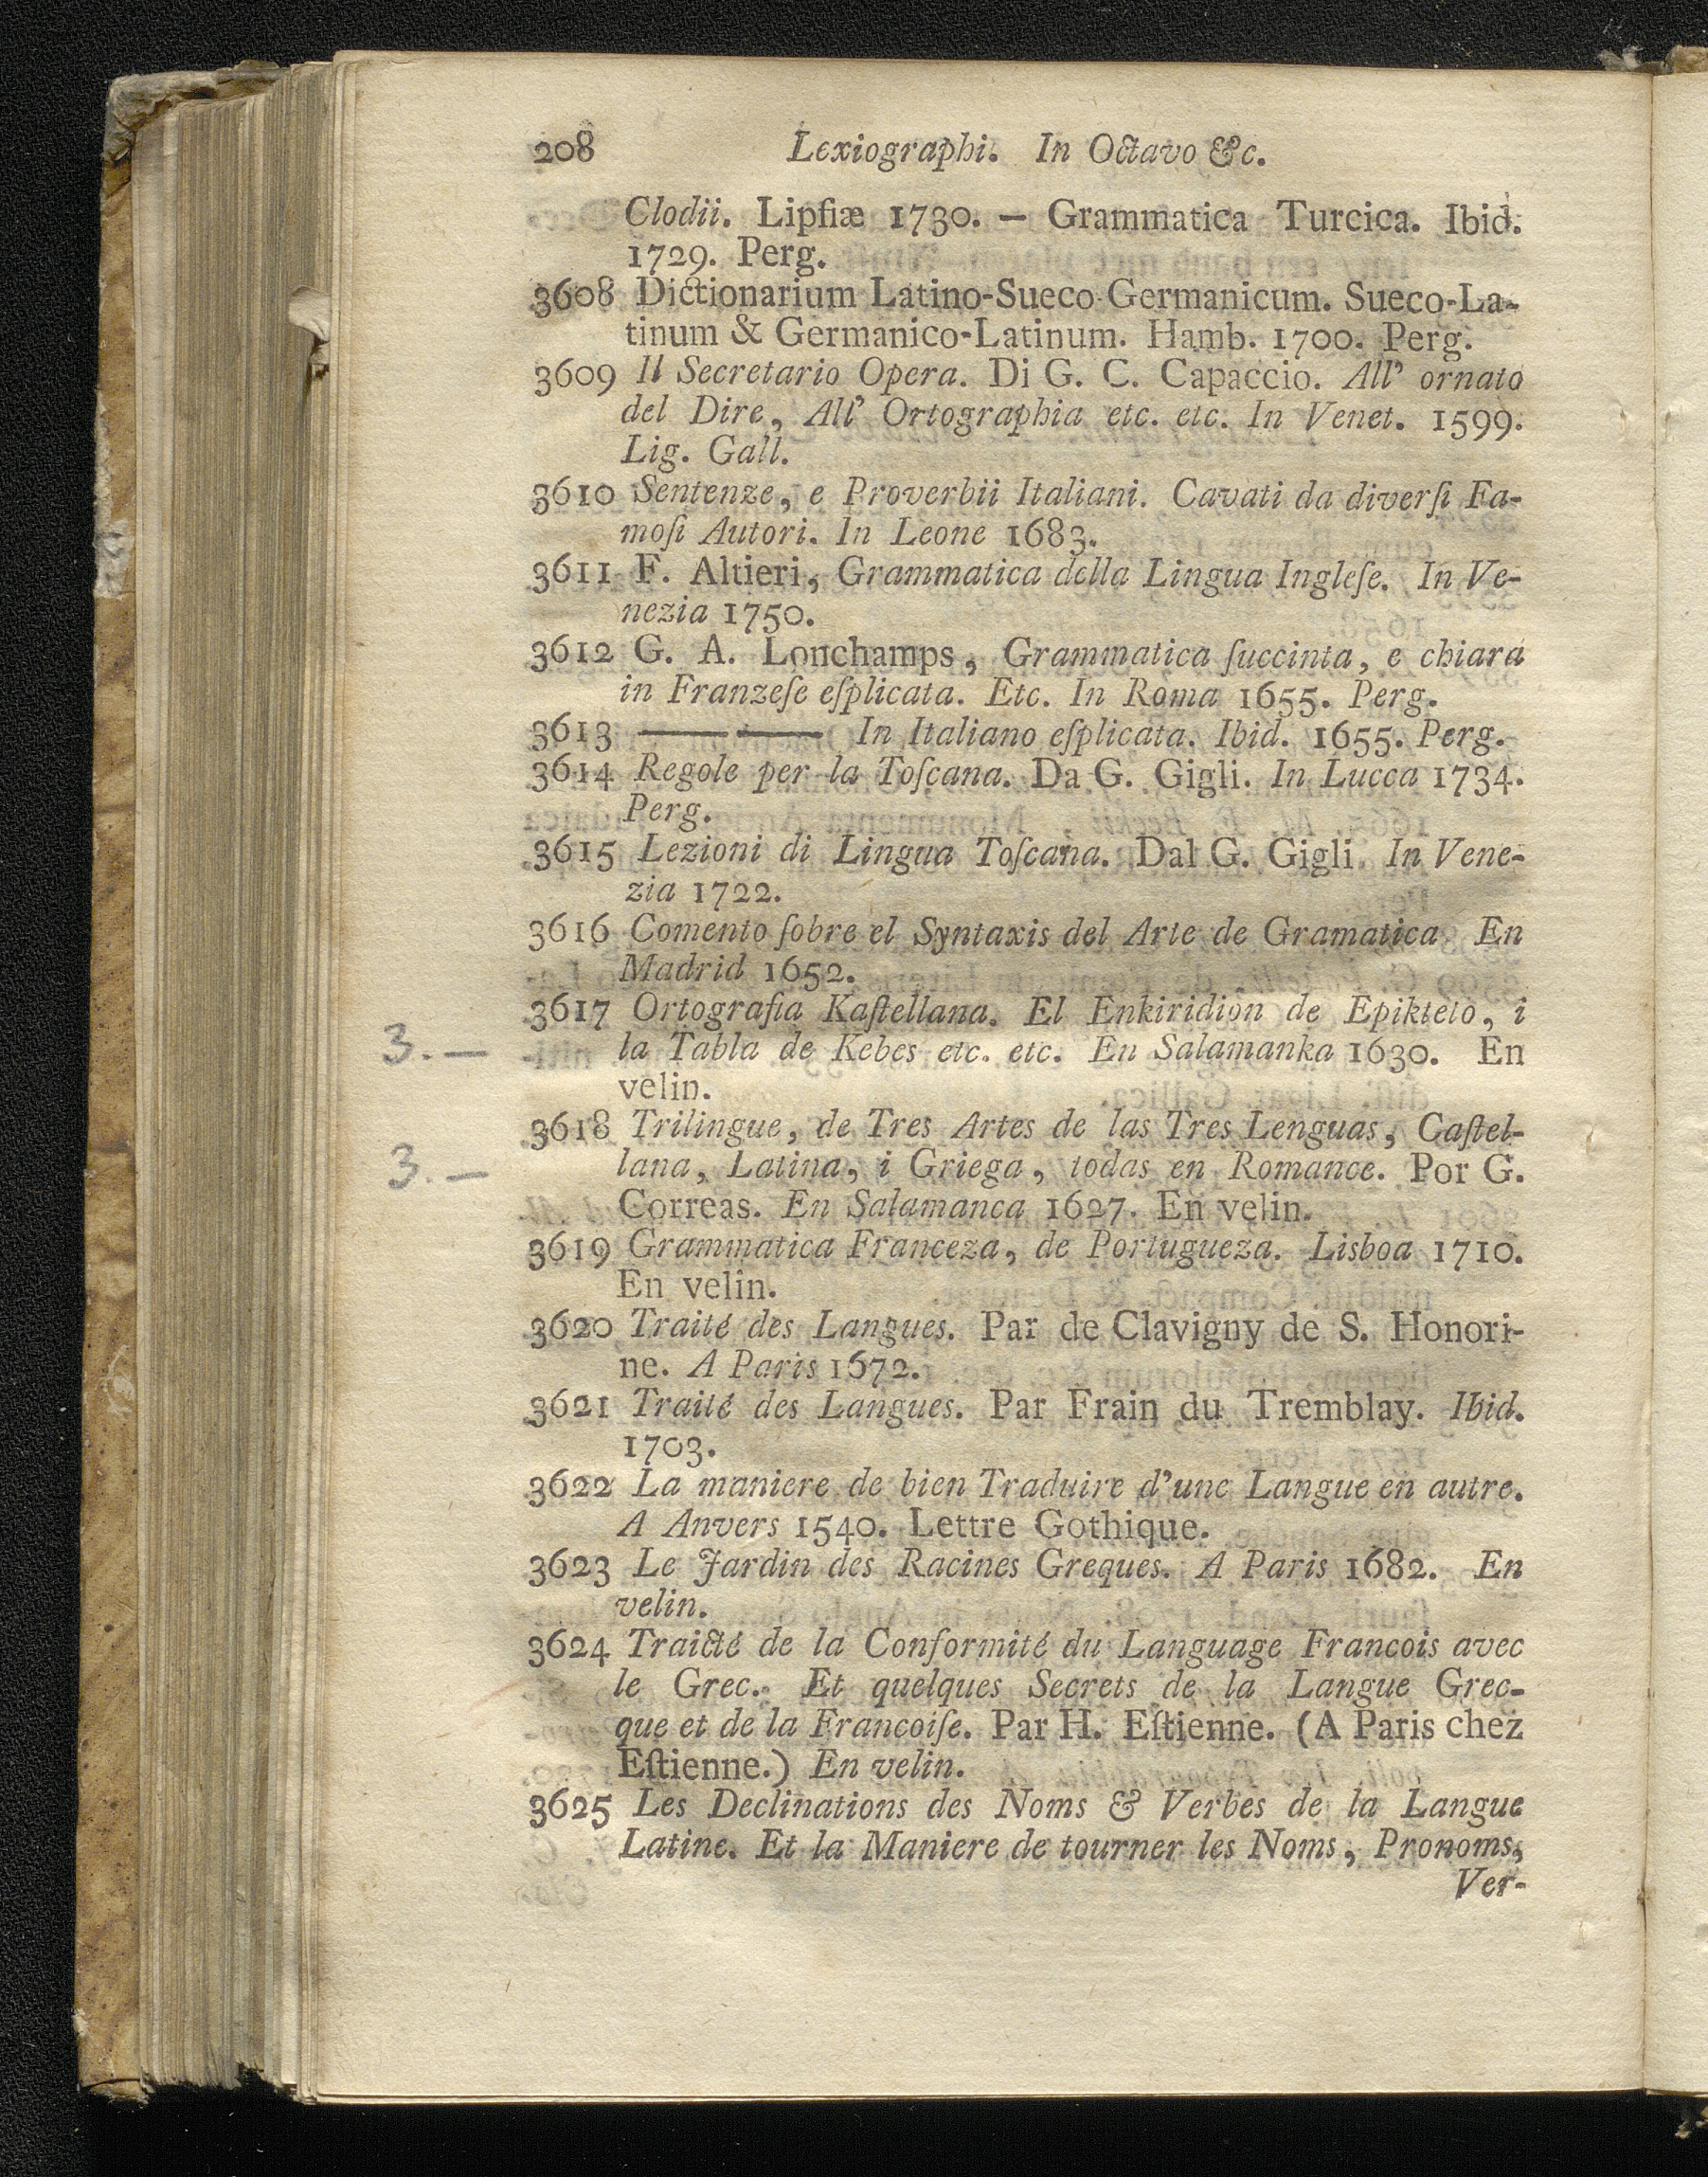 208 Lexiographi. In Octavo &c.
Clodii. Lipſiæ 1730. — Grammatica Turcica. Ibid.
1729. Perg.
3608 Dictionarium Latino-Sueco-Germanicum. Sueco-La-
tinum & Germanico-Latinum. Hamb. 1700. Perg.
3609 Il Secretario Opera. Di G. C. Capaccio. All' ornato
del Dire, All' Ortographia etc. etc. In Venet. 1599.
Lig. Gall.
3610 Sentenze, e Proverbii Italiani. Cavati da diverſi Fa-
moſi Autori. In Leone 1683.
3611 F. Altieri, Grammatica della Lingua Ingleſe. In Ve-
nezia 1750.
3612 G. A. Lonchamps, Grammatica ſuccinta, e chiara
in Franzeſe eſplicata. Etc. In Roma 1655. Perg.
3613 —— —— In Italiano eſplicata. Ibid. 1655. Perg.
3614 Regole per la Toſcana. Da G. Gigli. In Lucca 1734.
Perg.
3615 Lezioni di Lingua Toſcana. Dal G. Gigli. In Vene-
zia 1722.
3616 Comento ſobre el Syntaxis del Arte de Gramatica. En
Madrid 1652.
3617 Ortografia Kaſtellana. El Enkiridion de Epikteto, i
3.— la Tabla de Kebes etc. etc. En Salamanka 1630. En
velin.
3618 Trilingue, de Tres Artes de las Tres Lenguas, Caſtel-
3.— lana, Latina, i Griega, todas en Romance. Por G.
Correas. En Salamanca 1627. En velin.
3619 Grammatica Franceza, de Portugueza. Lisboa 1710.
En velin.
3620 Traité des Langues. Par de Clavigny de S. Honori-
ne. A Paris 1672.
3621 Traité des Langues. Par Frain du Tremblay. Ibid.
1703.
3622 La maniere de bien Traduire d'une Langue en autre.
A Anvers 1540. Lettre Gothique.
3623 Le Jardin des Racines Greques. A Paris 1682. En
velin.
3624 Traicté de la Conformité du Language Francois avec
le Grec. Et quelques Secrets de la Langue Grec-
que et de la Francoiſe. Par H. Eſtienne. (A Paris chez
Eſtienne.) En velin.
3625 Les Declinations des Noms & Verbes de la Langue
Latine. Et la Maniere de tourner les Noms, Pronoms,
Ver-